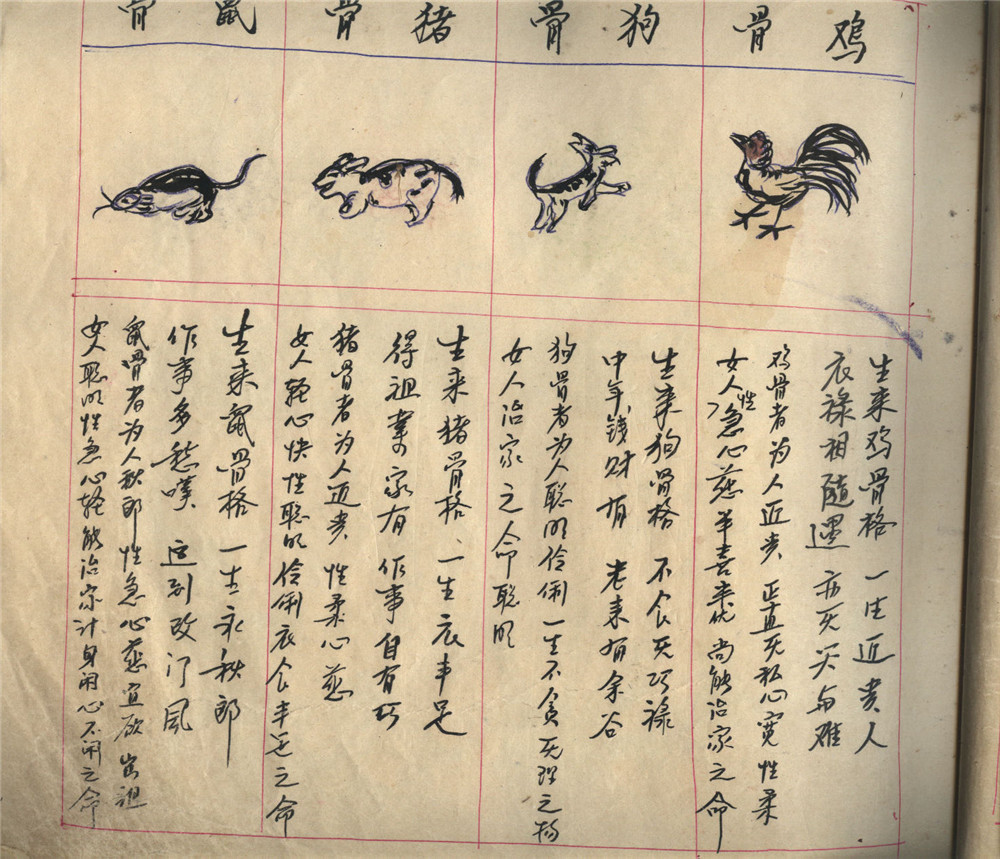 鸡骨
生来鸡骨格 一生近贵人
衣禄相随遇 亦灾灾与难
鸡骨者为人近贵 正直无私心宽性柔
女人性急心慈 尚能治家之命
狗骨
生来狗骨格 不食无巧禄
中年钱财有 老来有余谷
狗骨者为人聪明伶俐一生不贪无理之物
女人治家之命聪明
猪骨
生来猪骨格 一生衣丰足
得祖业家有 作事自有巧
猪骨者为人近贵 性柔心慈
女人轻心快性聪明伶俐衣食丰足之命
鼠骨
生来鼠骨格 一生永秋郎
作事多愁叹 这到改门风
鼠骨者为人秋郎性急心慈宜 出祖
女人聪明性急心轻能治家计身闲心不闲之命